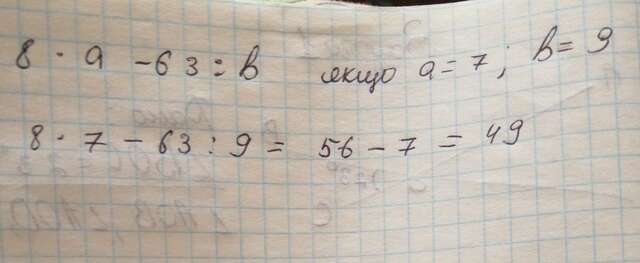 8 · a - 63 : b якщо a = 7 ; b = 9
8 · 7 - 63 : 9 = 56 - 7 = 49